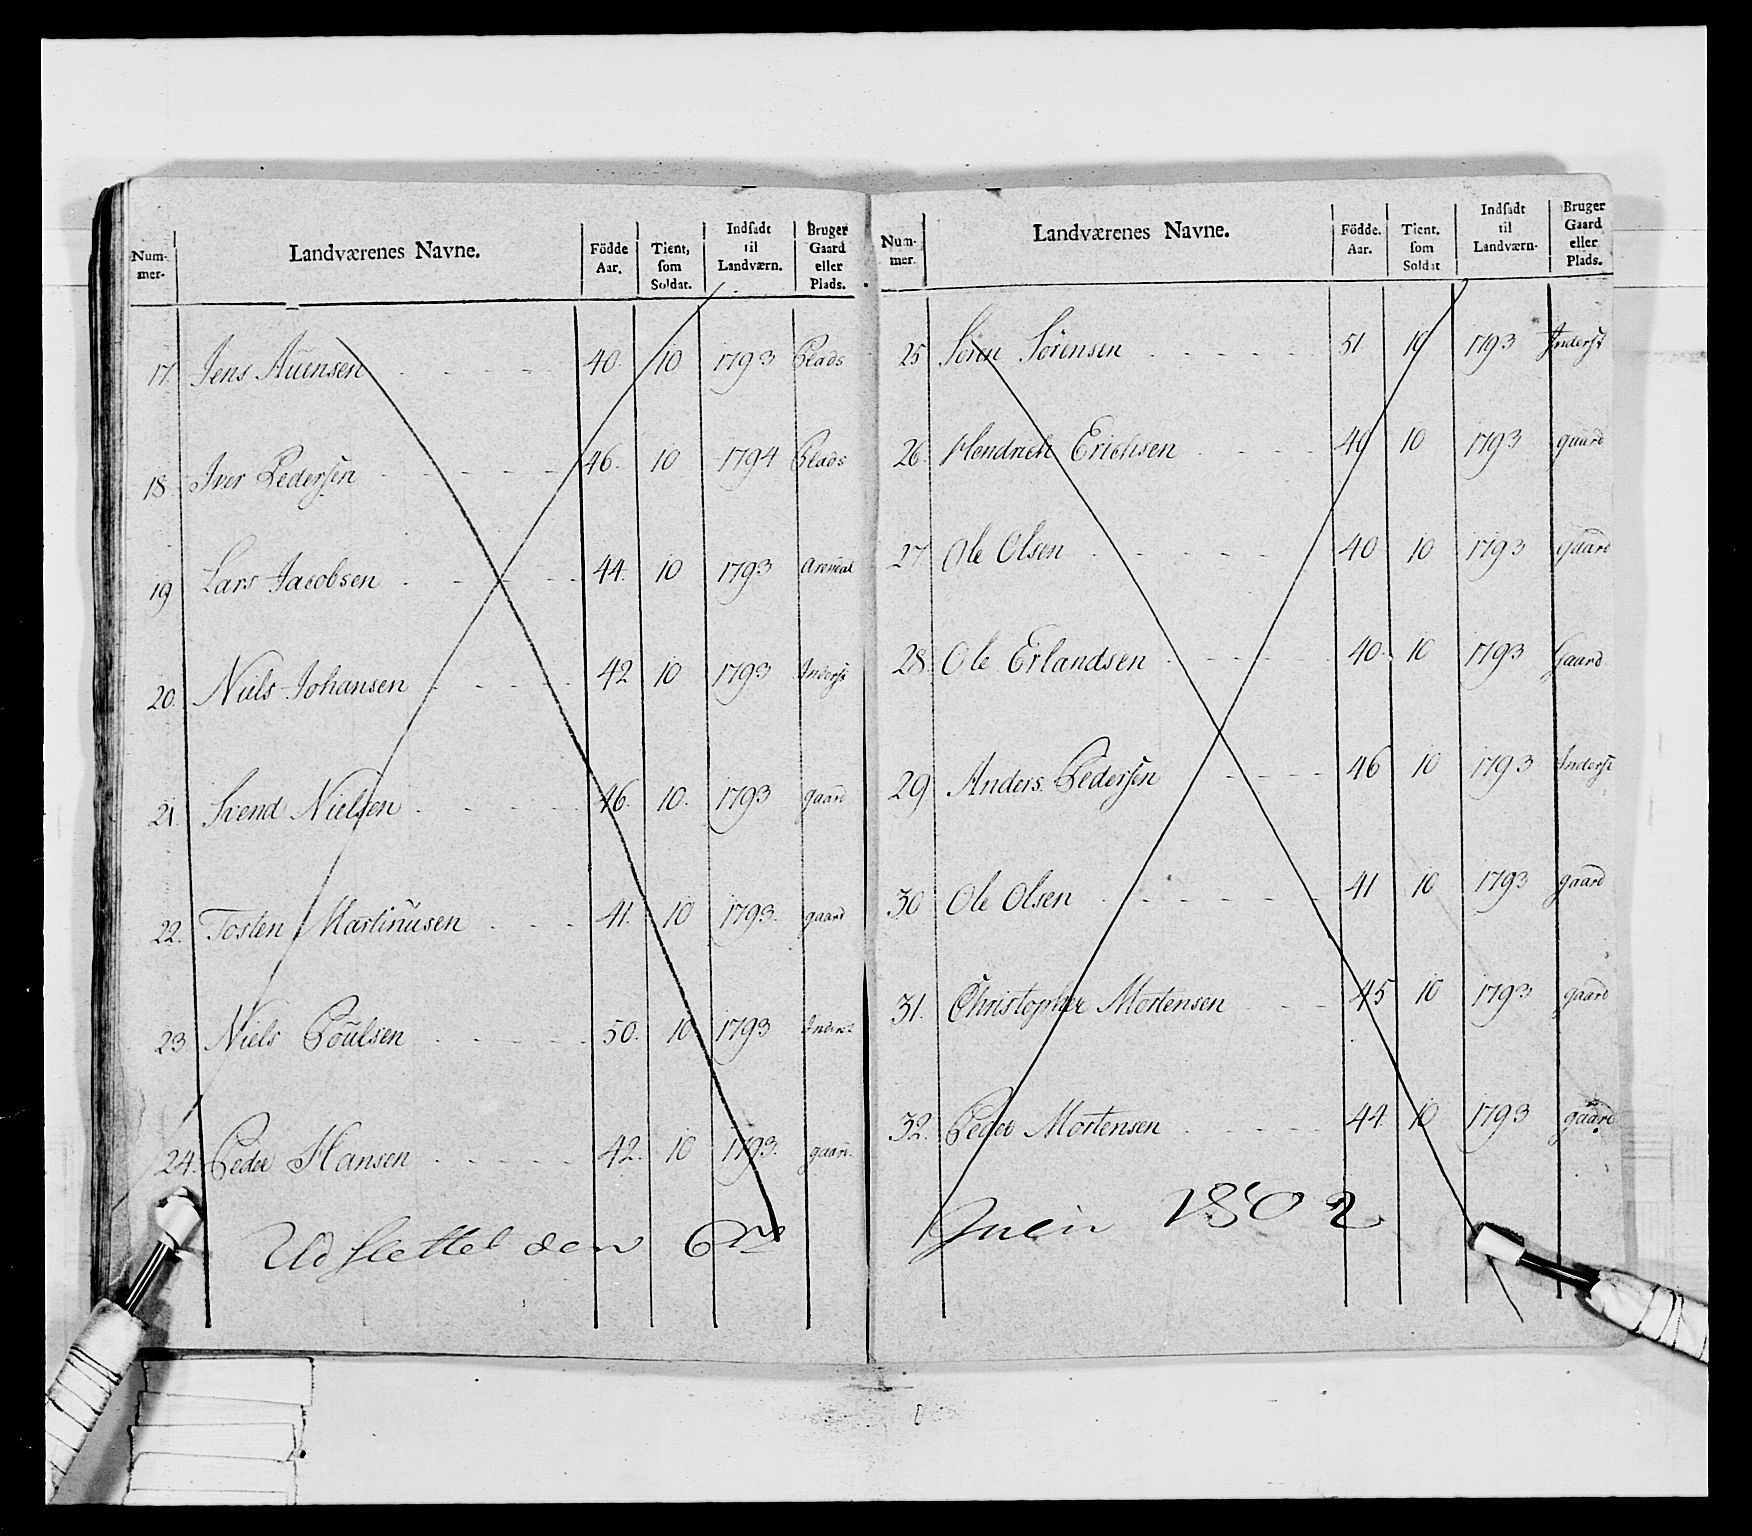 Num-mer. Landværenes Navne. Födde Aar. Tient, som Soldat. Indsadt til Landværn. Bruger Gaard eller Plads.
17. Jens Auensen 40. 10 1793 Plads
18 Iver Pedersen 46. 10 1794 Plads
19 Lars Jacobsen 44. 10 1793 Arendal
20. Niels Johansen 42 10 1793 Inderst
21. Svend Nielsen 46. 10. 1793 gaard
22. Tosten Martinusen 41. 10 1793. gaard
23. Niels Poulsen 50. 10 1793 Inderst
24. Peder Hansen 42. 10 1793. gaard
Udslettet den 6te
Num-mer. Landværenes Navne. Födde. Aar. Tient. som Soldat Indsadt til Landværn. Bruger Gaard eller Plads.
25 Sören Sörensen 51 10 1793 Inderst
26. Hendrich Erichsen 49 10 1793 gaard
27 Ole Olsen 40 10 1793 gaard
28. Ole Erlandsen 40. 10 1793 Gaard
29 Anders Pedersen 46 10 1793 Inderst
30 Ole Olsen 41 10 1793 gaard
31. Christopher Mortensen 45 10 1793 gaard
32. Peder Mortensen 44. 10 1793 gaard
Junii 1802